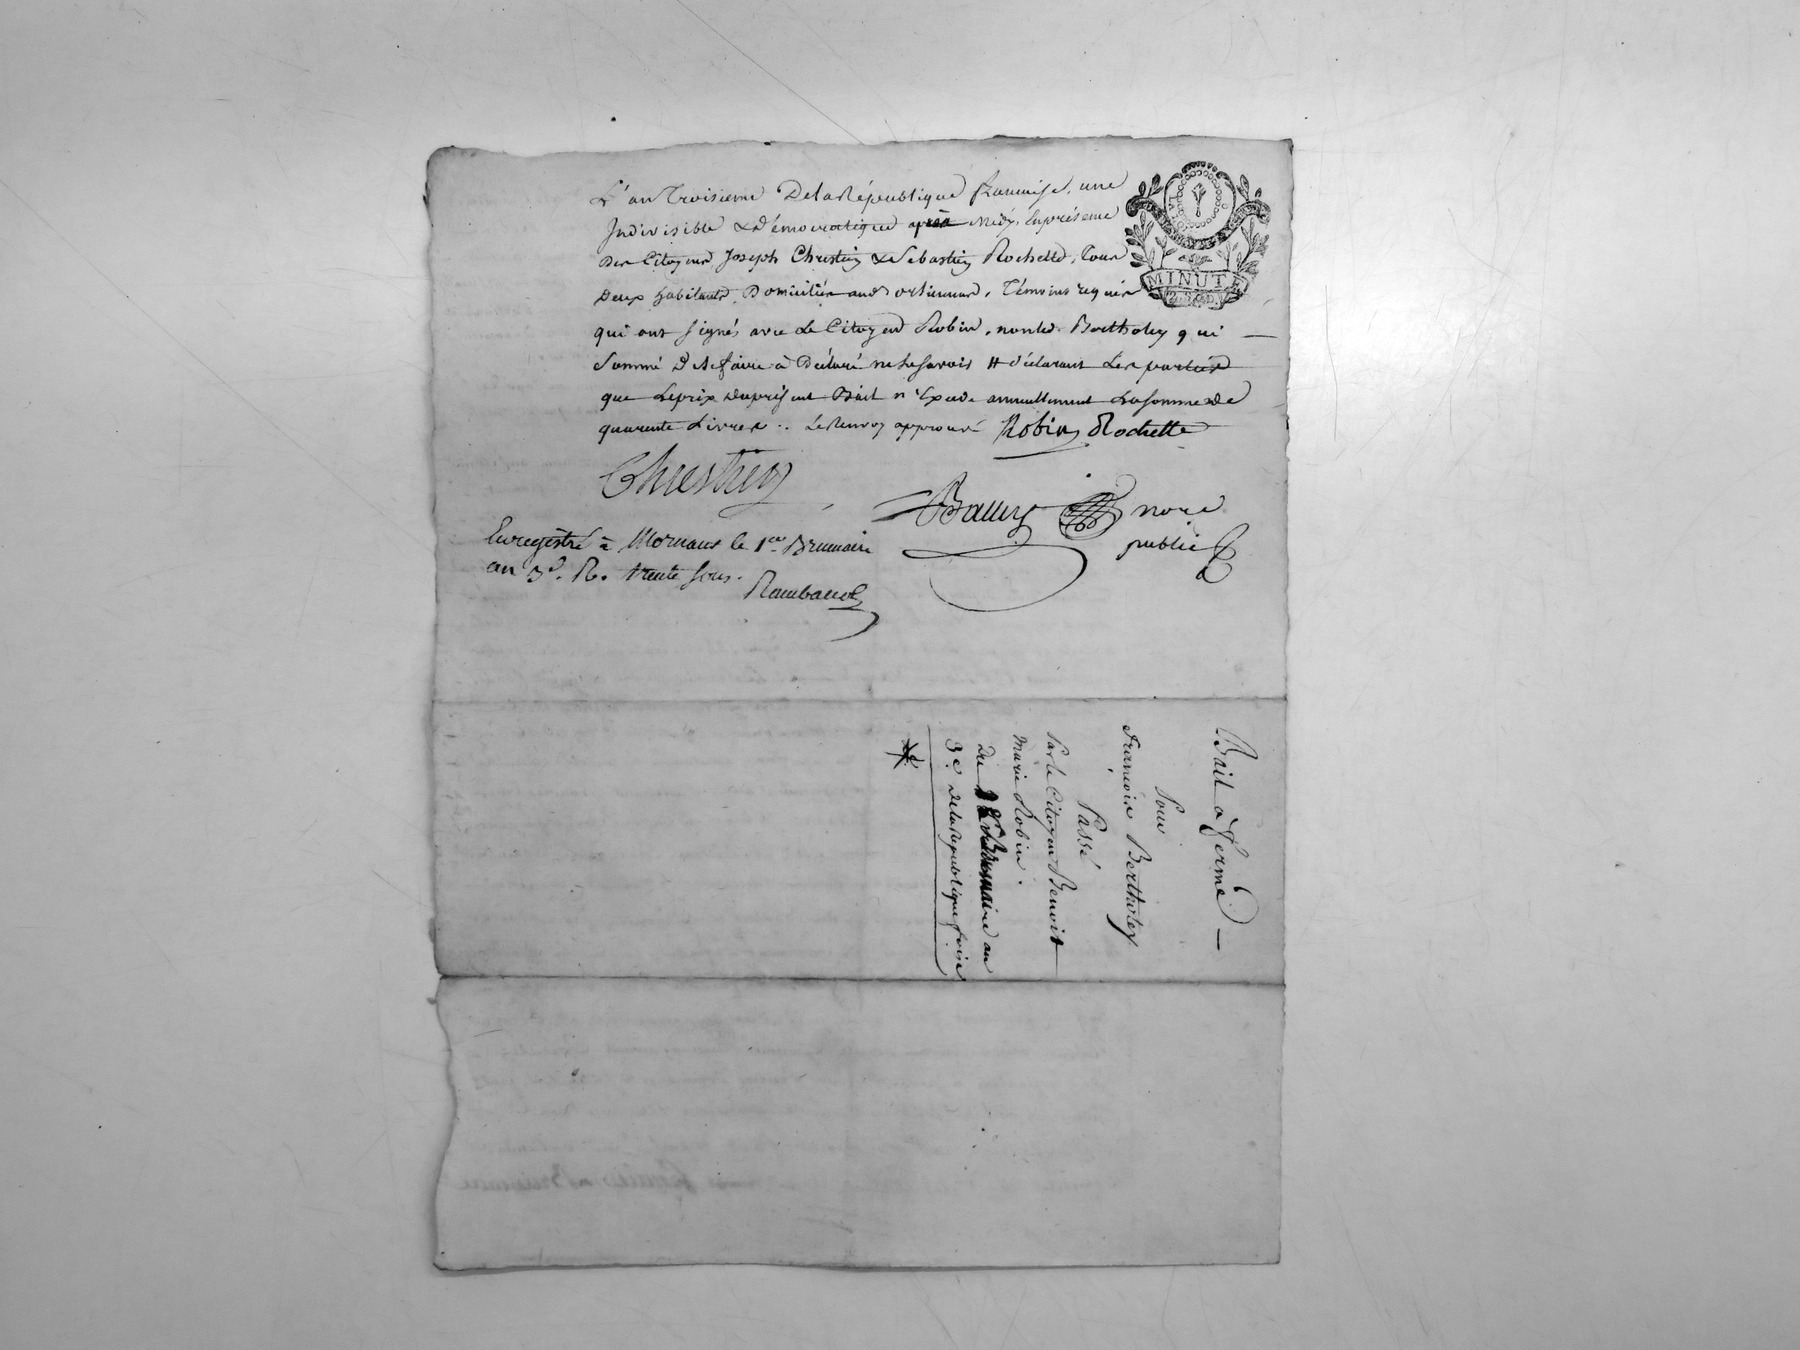 L'an Troisieme De la République francaise, une
Indivisible & Démocratique après Midy, En présence
Des Citoyens Joseph Chrestin & Sebastien Rochette, Tous
Deux habitants Domiciliés, Témoins requis
qui ont signés avec Le Citoyen Robin, non Led. Bertholey qui
Sommé De le faire à Déclaré ne le savoir # déclarant Les parties
que Le prix du présent Bail n'Excede annuellement La somme De
quarante Livres .. Le Renvoy approuvé Robin Rochette
Chrestin
nore
public
MINUTE
Enregistré à Mornant le 1er Brumaire
an 3e. R. trente sous.
Raimbaud
Bail a ferme
Pour
Francois Bertholey
Passé
Par le Citoyen Benoit
Marie Robin.
Du 1er Brumaire an
3e. De la Republique frise